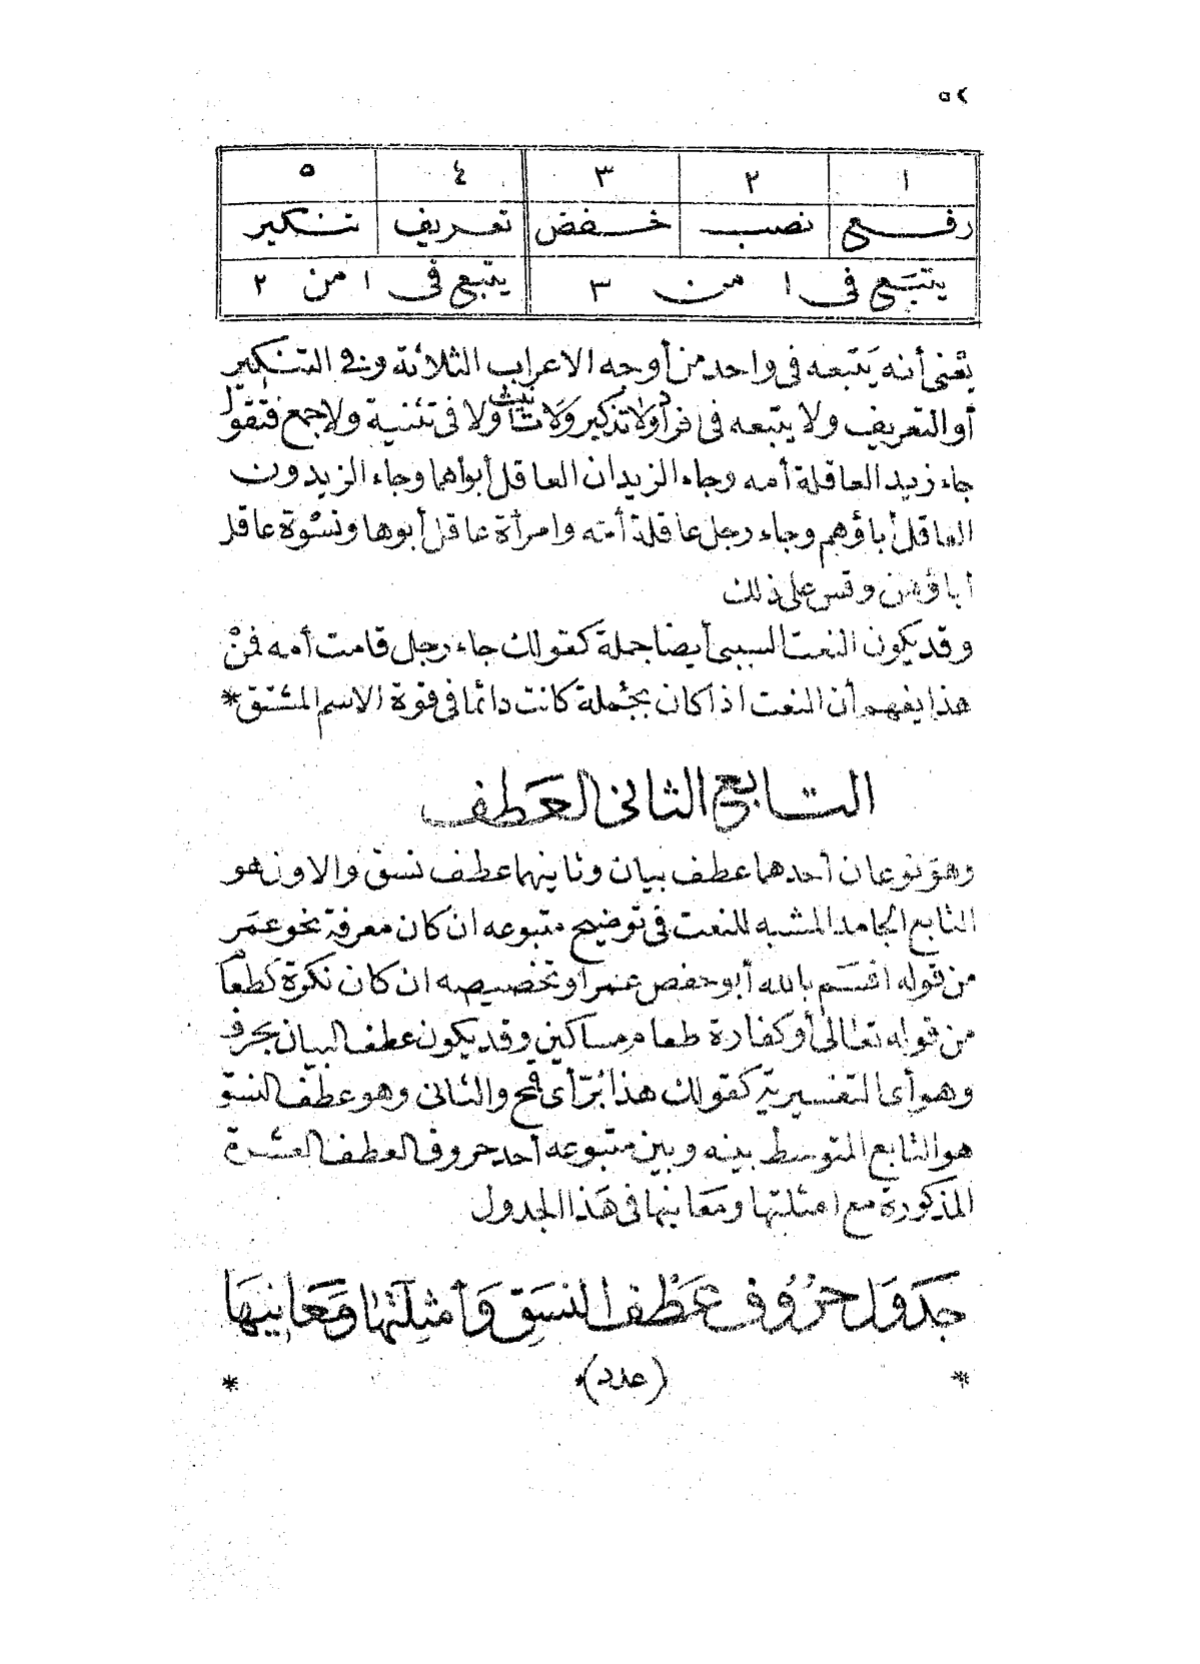 ٥٢
١ ٢ ٣ ٤ ٥
رفع نصب خفض تعريف تنكير
يتبَع فى ١ من ٣ يتبع فى ١ من ٢
يعْنى أنه يَتبعه فى واحد من أوجه الاعراب الثلاثة وفى التنكير
أو التعريف ولا يتبعه فى افراد ولا تذكير ولا تأنيث ولا فى تثنية ولا جمع فتقول
جاء زيد العاقلة أمه وجاء الزيدان العاقل أبواهما وجاء الزيدون
العاقل أباؤهم وجاء رجل عاقلة أمّه وامرأة عاقل أبوها ونسْوة عاقل
اباؤهن وقس على ذلك
وقد يكون النعت السببى أيضا جملة كقولك جاء رجل قامت أمه فمنْ
هذا يفهم أن النعت اذا كان بجُملة كانت دائما فى قوة الاسم المشتق *
التابع الثانى العَطف
وهو نوعان أحدهما عطف بيان وثانيهما عطف نسق والاول هو
التابع الجامد المشبه للنعت فى توضيح متبوعه ان كان معرفة نحو عمَر
من قوله اقسَم بالله أبو حفص عمر أو تخصيصه ان كان نكرة كطعام
من قوله تعالى أو كفارة طعام مساكين وقد يكون عطف البيان بحرف
وهو أى التفسيرية كقولك هذا بُرّ أى قمح والثانى وهو عطف النسق
هو التابع المتوسط بينه وبين متبوعه أحد حروف العطف العشرة
المذكورة مع امثلتها ومَعانيها فى هَذا الجدول
جَدوَل حرُوُف عَطْف النسَق وَأمثِلَتهَا ومَعَانيهَا
* (عدد) *